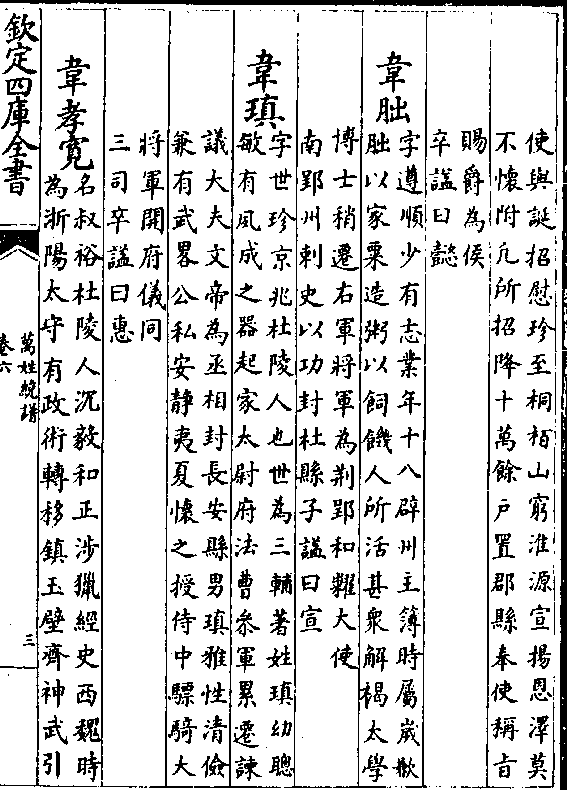 使與誕招慰珍至桐栢山窮淮源宣揚恩澤莫
不懷附凢所招降十萬餘户置郡縣奉使稱旨
賜爵為侯
卒諡曰懿
韋朏
字遵順少有志業年十八辟州主簿時屬歲歉
朏以家粟造粥以飼饑人所活甚衆解褐太學
博士稍遷右軍將軍為荆郢和糴大使
南郢州刺史以功封杜縣子諡曰宣
韋瑱
字世珍京兆杜陵人也世為三輔著姓瑱幼聰
敏有夙成之器起家太尉府法曹叅軍累遷諫
議大夫文帝為丞相封長安縣男瑱雅性清儉
兼有武畧公私安静夷夏懷之授侍中驃騎大
將軍開府儀同
三司卒諡曰惠
韋孝寛
名叔裕杜陵人沉毅和正涉獵經史西魏時
為浙陽太守有政術轉移鎮玉壁齊神武引
欽定四庫全書
萬姓統譜
卷六
三